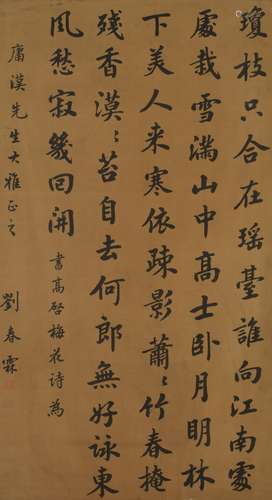 瓊枝只合在瑶臺誰向江南處
處栽雪滿山中高士卧月明林
下美人来寒依疎影蕭〻竹春掩
殘香漠〻苔自去何郎無好詠東
風愁寂幾回開
書高啓梅花詩為
庸漠先生大雅正之
劉春霖